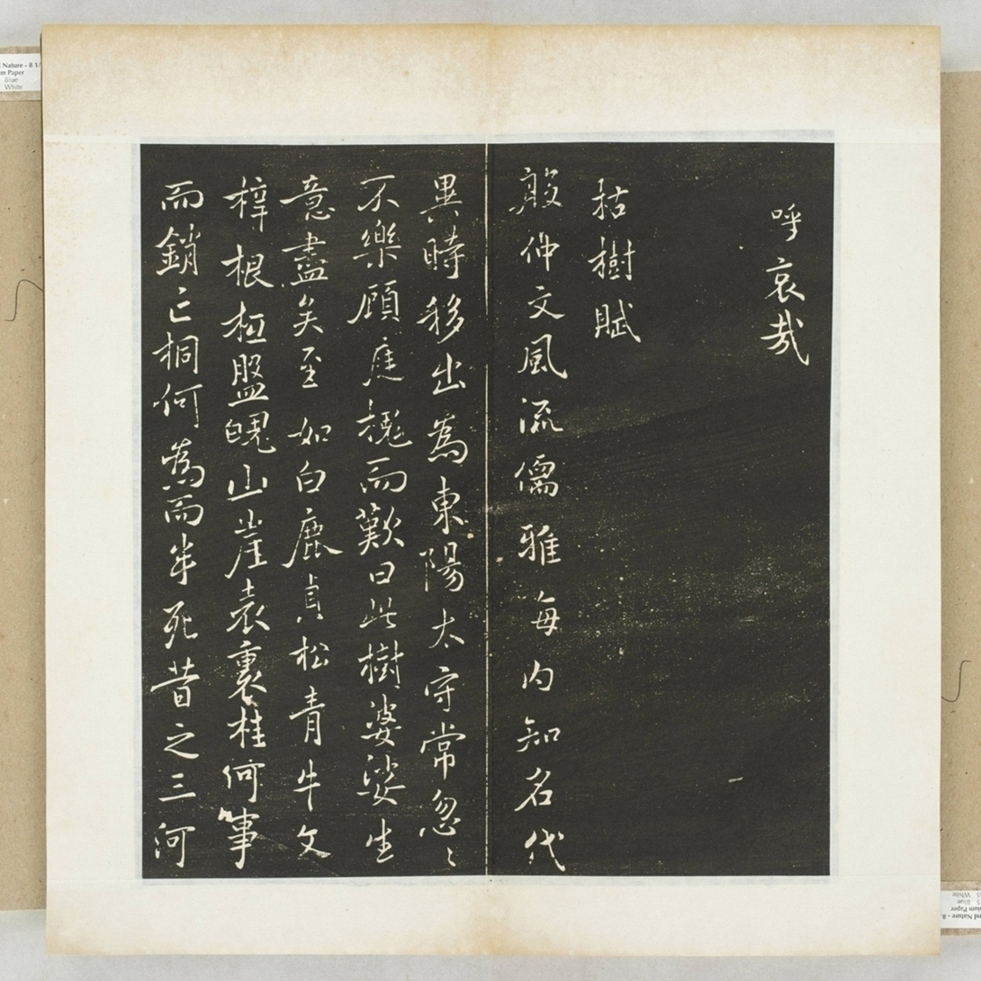 呼哀哉
枯樹賦
殷仲文風流儒雅海内知名代
異時移出為東陽太守常忽〻
不樂顧庭槐而歎曰此樹婆娑生
意盡矣至如白鹿貞松青牛文
梓根柢盤魄山崖表裏桂何事
而銷亡桐何為而半死昔之三河
Nature - 8 1/
Paper
Blue
White
Nature - 8
Paper
Blue
White